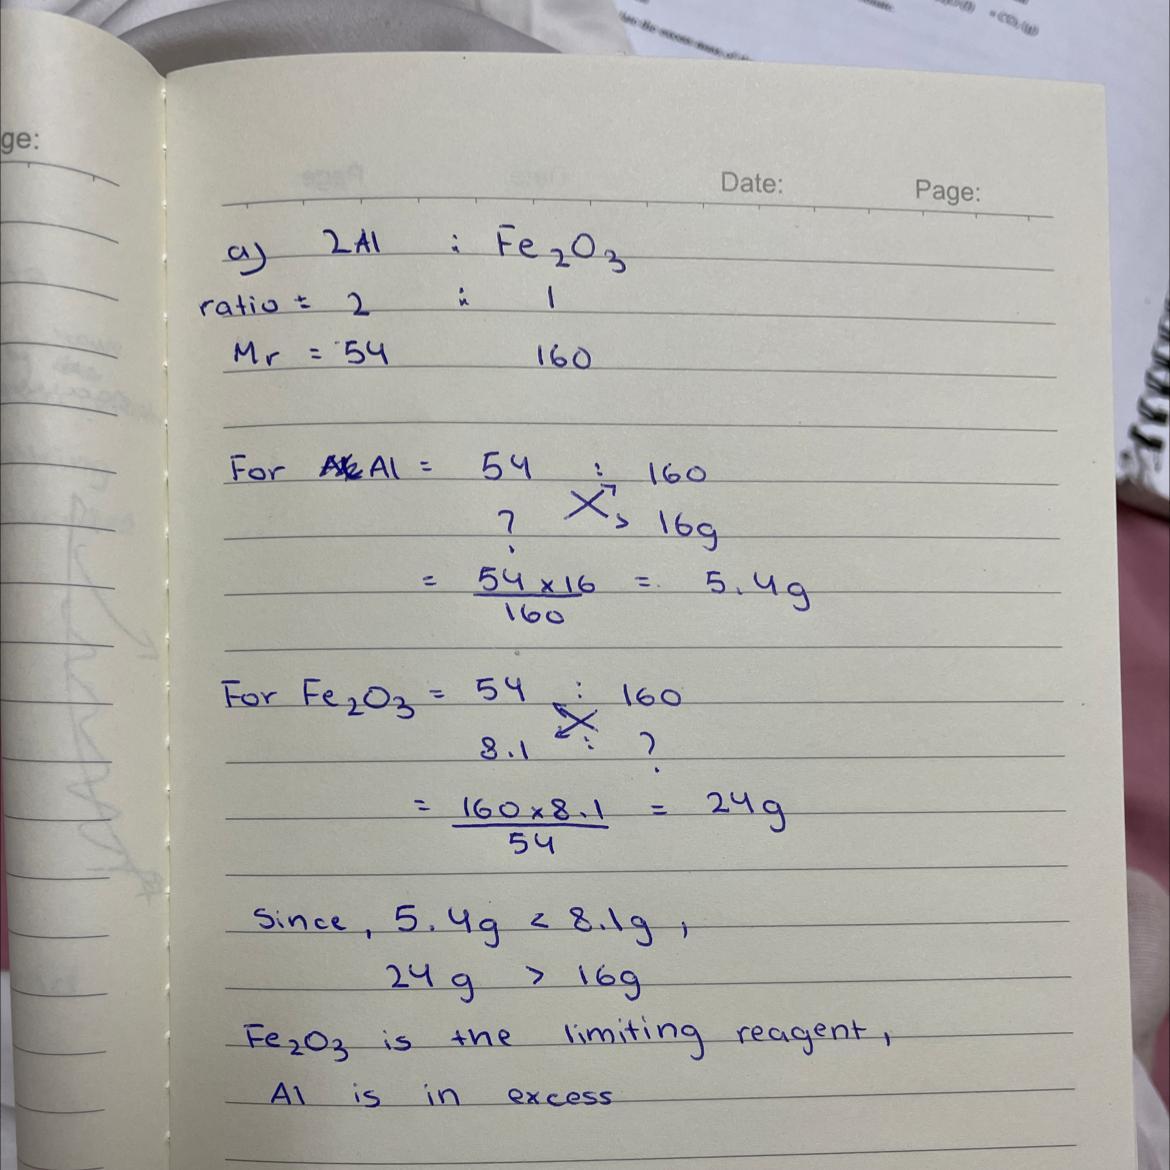 = CO₂(g)
ge:
Date: Page:
a) 2Al : Fe₂O₃
ratio = 2 : 1
Mr = 54 160
For Al = 54 : 160
? 16g
= 54 x 16 / 160 = 5.4g
For Fe₂O₃ = 54 : 160
8.1 : ?
= 160 x 8.1 / 54 = 24g
Since, 5.4g < 8.1g,
24g > 16g
Fe₂O₃ is the limiting reagent,
Al is in excess